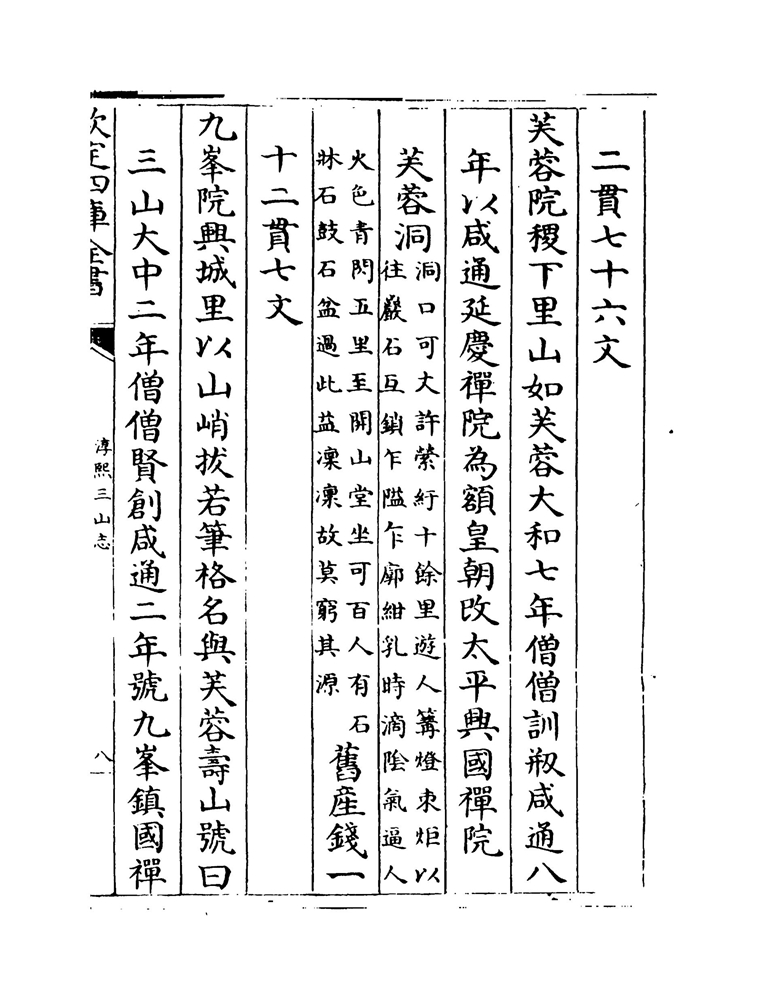 二貫七十六文
芙蓉院稷下里山如芙蓉大和七年僧僧訓剏咸通八
年以咸通延慶禪院為額皇朝改太平興國禪院
芙蓉洞
洞口可丈許縈紆十餘里遊人篝燈束炬以
往巖石互鎖乍隘乍廓紺乳時滴陰氣逼人
火色青閃五里至開山堂坐可百人有石
牀石鼓石盆過此益凜凜故莫窮其源
舊產錢一
十二貫七文
九峯院興城里以山峭拔若筆格名與芙蓉壽山號曰
三山大中二年僧僧賢創咸通二年號九峯鎮國禪
欽定四庫全書
淳熙三山志
八